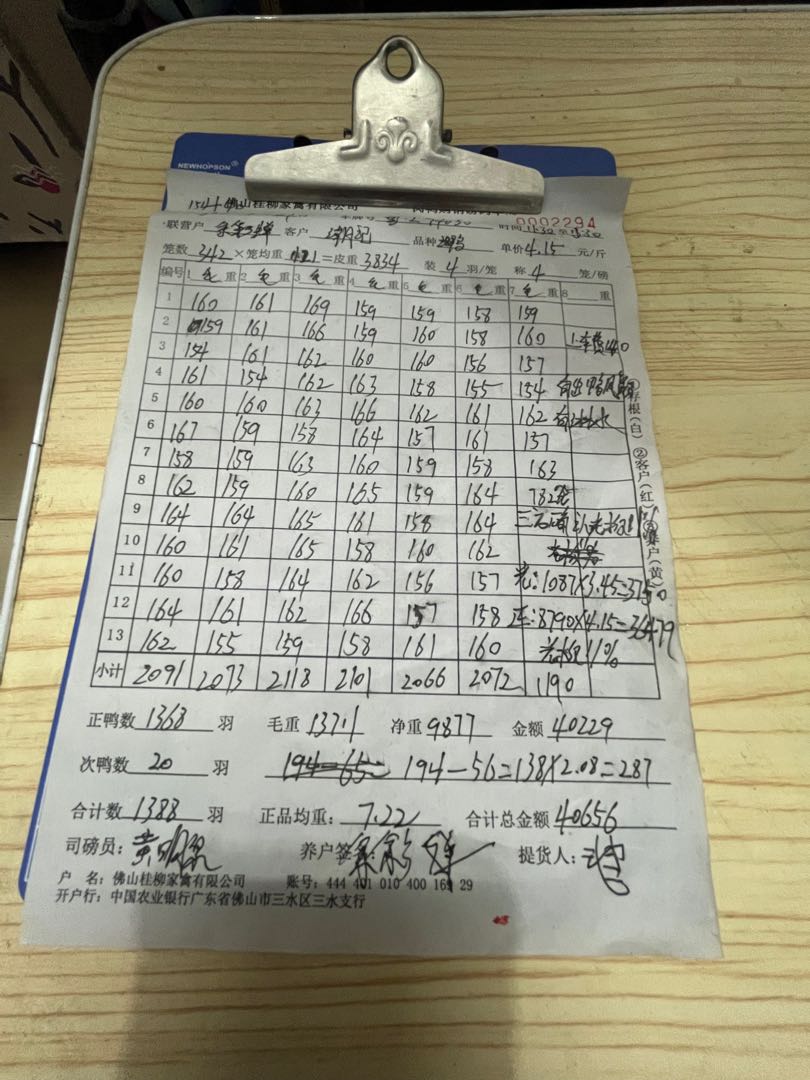 NEWHOPSON®
佛山桂柳家禽有限公司
0002294
联营户 客户 品种 单价4.15 元/斤
笼数 342 ×笼均重 =皮重 3834 装 4 羽/笼 称 4 笼/磅
编号 1 毛 重 2 毛 重 3 毛 重 4 毛 重 5 毛 重 6 毛 重 7 毛 重 8 重
1 160 161 169 159 159 158 159
2 159 161 166 159 160 158 160
3 154 161 162 160 160 156 157
4 161 154 162 163 158 155 154
5 160 160 163 166 162 161 162
6 167 159 158 164 157 161 157
7 158 159 163 160 159 158 163
8 162 159 160 165 159 164
9 164 164 165 161 158 164
10 160 161 165 158 160 162
11 160 158 164 162 156 157 光:1087×3.45=3750
12 164 161 162 166 157 158 8790×4.15=36479
13 162 155 159 158 161 160 11%
小计 2091 2073 2118 2101 2066 2072 1190
①存根(白) ②客户(红) ③养户(黄)
正鸭数 1368 羽 毛重 13711 净重 9877 金额 40229
次鸭数 20 羽 194-65= 194-56=138×2.08=287
合计数 1388 羽 正品均重: 7.22 合计总金额 40656
司磅员: 养户签 提货人:
户 名:佛山桂柳家禽有限公司 账号:444 401 010 400 169 29
开户行:中国农业银行广东省佛山市三水区三水支行